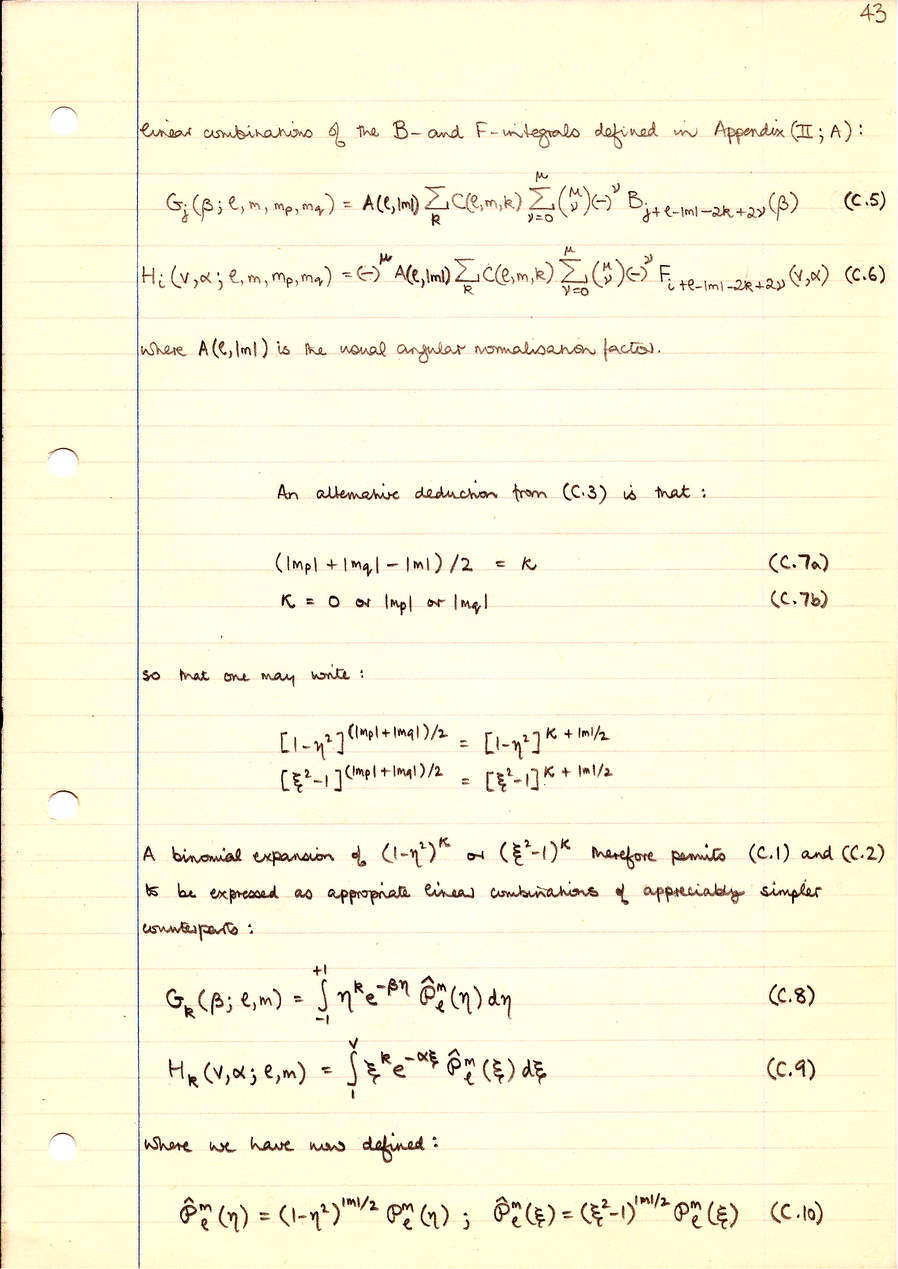 43
linear combinations of the B- and F-integrals defined in Appendix (II; A):
G_j(β; ℓ, m, m_p, m_q) = A(ℓ,|m|) Σ_k C(ℓ,m,k) Σ_{ν=0}^{μ} (μ ν) (-)^ν B_{j+ℓ-|m|-2k+2ν}(β) (C.5)
H_i(V,α; ℓ, m, m_p, m_q) = (-)^μ A(ℓ,|m|) Σ_k C(ℓ,m,k) Σ_{ν=0}^{μ} (μ ν) (-)^ν F_{i+ℓ-|m|-2k+2ν}(V,α) (C.6)
where A(ℓ,|m|) is the usual angular normalisation factor.
An alternative deduction from (C.3) is that :
(|m_p| + |m_q| - |m|)/2 = κ (C.7a)
κ = 0 or |m_p| or |m_q| (C.7b)
so that one may write :
[1-η²]^{(|m_p|+|m_q|)/2} = [1-η²]^{κ + |m|/2}
[ξ²-1]^{(|m_p|+|m_q|)/2} = [ξ²-1]^{κ + |m|/2}
A binomial expansion of (1-η²)^κ or (ξ²-1)^κ therefore permits (C.1) and (C.2)
to be expressed as appropriate linear combinations of appreciably simpler
counterparts :
G_k(β; ℓ,m) = ∫_{-1}^{+1} η^k e^{-βη} P̂_ℓ^m(η) dη (C.8)
H_k(V,α; ℓ,m) = ∫_1^V ξ^k e^{-αξ} P̂_ℓ^m(ξ) dξ (C.9)
where we have now defined :
P̂_ℓ^m(η) = (1-η²)^{|m|/2} P_ℓ^m(η) ; P̂_ℓ^m(ξ) = (ξ²-1)^{|m|/2} P_ℓ^m(ξ) (C.10)